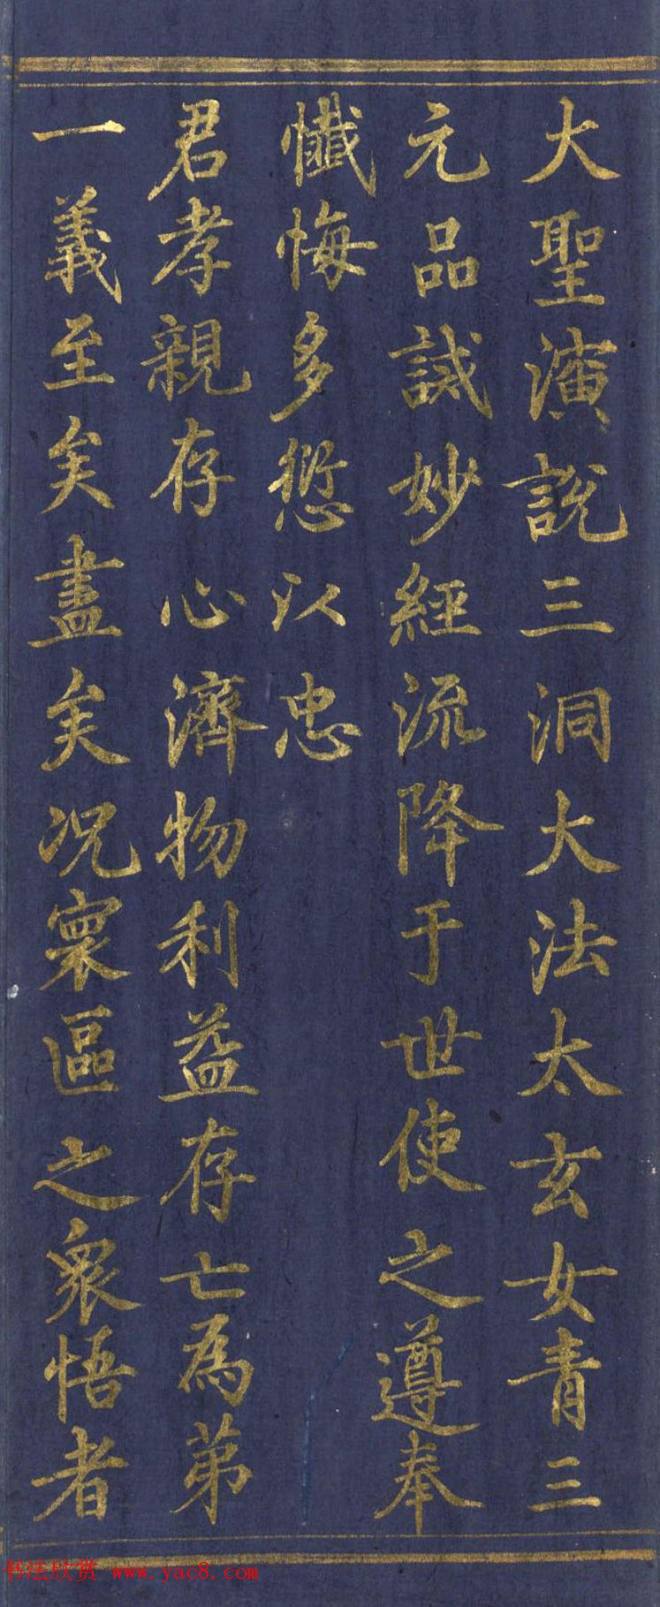 大聖演說三洞大法太玄女青三
元品誡妙經流降于世使之遵奉
懺悔多愆以忠
君孝親存心濟物利益存亡為弟
一義至矣盡矣况寰區之衆悟者
书法欣赏 www.yac8.com